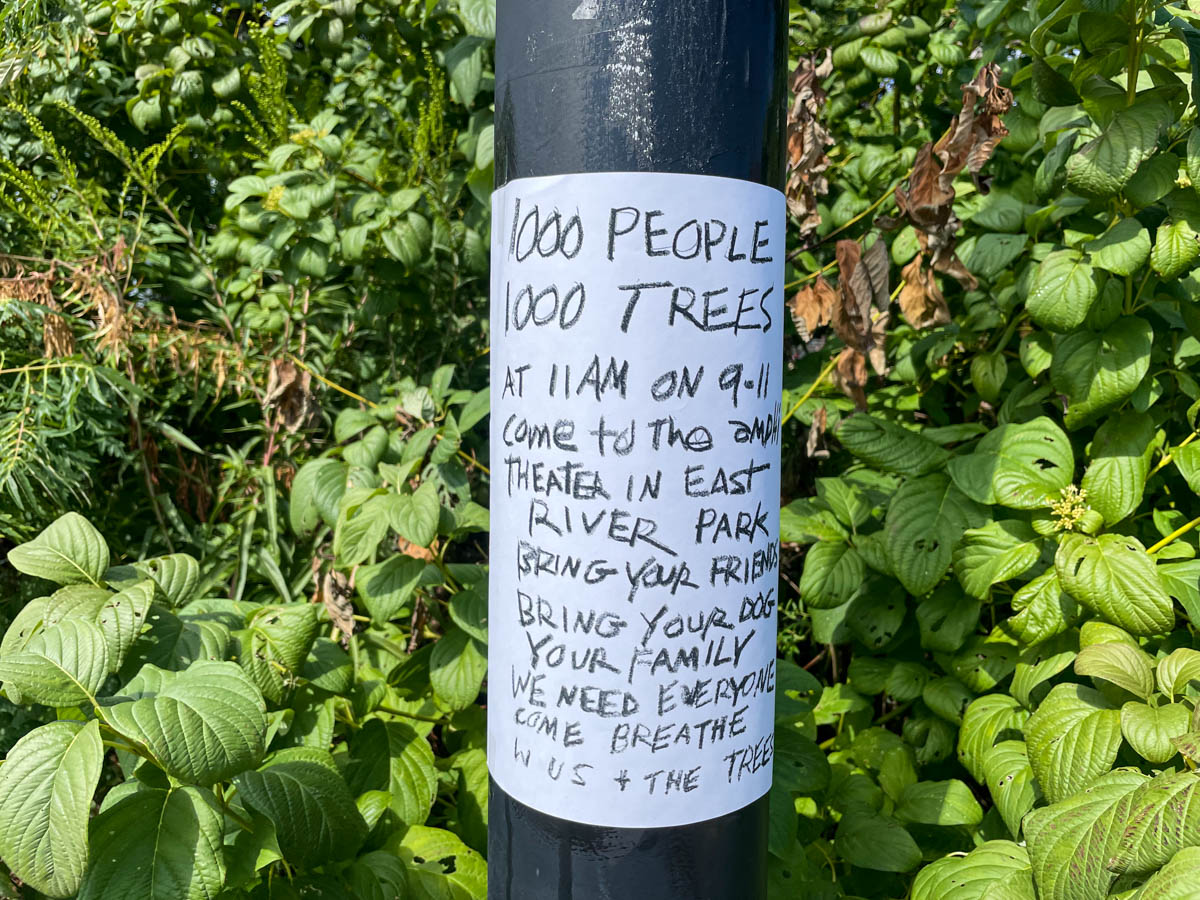 1000 PEOPLE
1000 TREES
AT 11 AM ON 9-11
come to The amphi
THEATER IN EAST
RIVER PARK
BRING YOUR FRIENDS
BRING YOUR DOG
YOUR FAMILY
WE NEED EVERYONE
COME BREATHE
W US + THE TREES